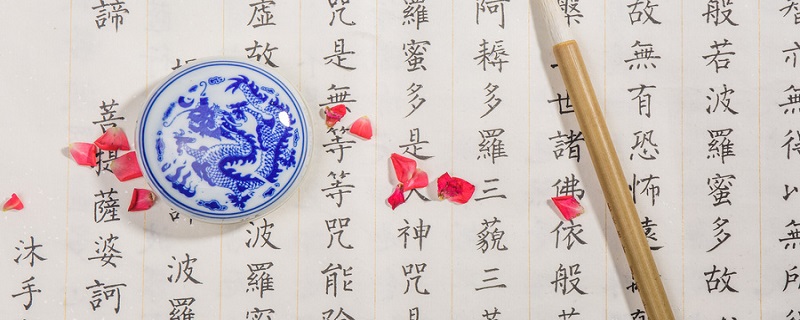 智亦無得以無所
般若波羅蜜多故
故無有恐怖遠
槃世諸佛依般若
阿耨多羅三藐三菩
羅蜜多是大神咒是
咒是無等等咒能除
虛故波羅蜜
波羅
諦菩提薩婆訶
沐手